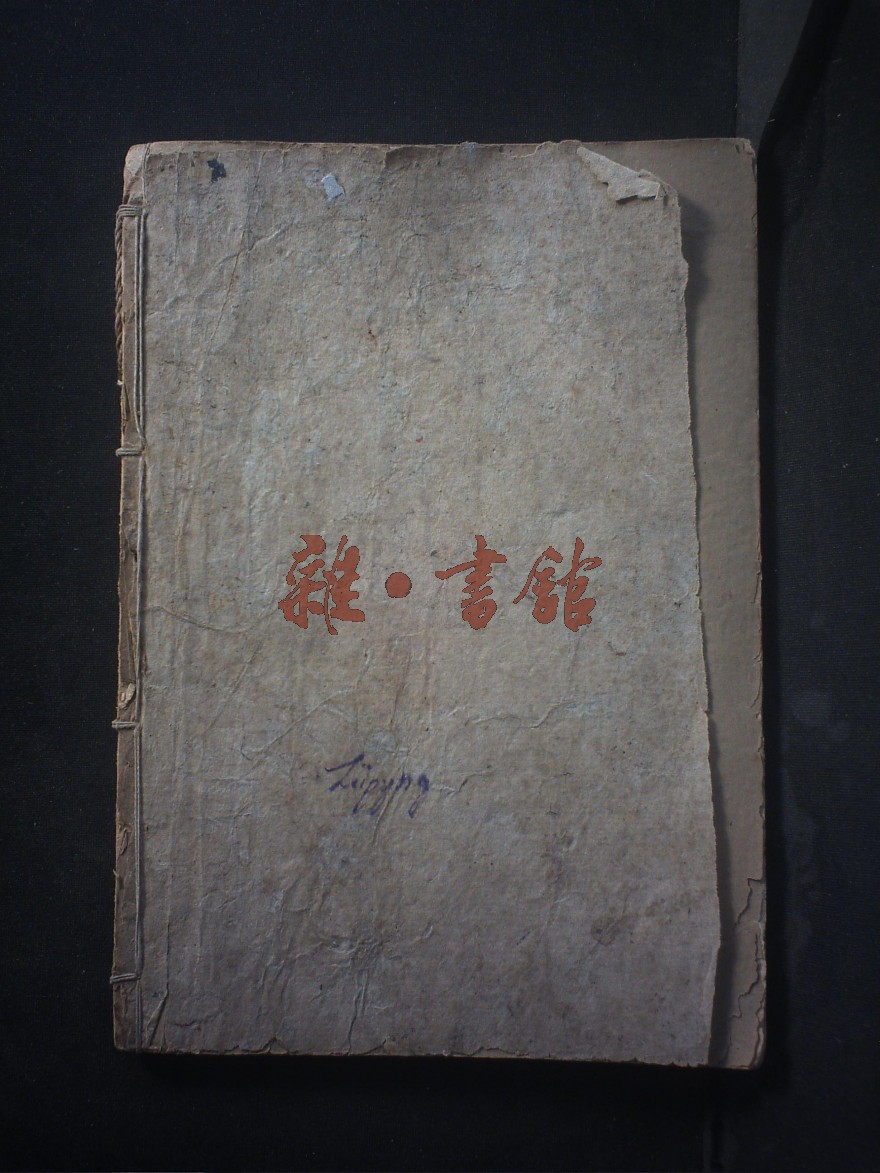 雜·書館
Lüpyng